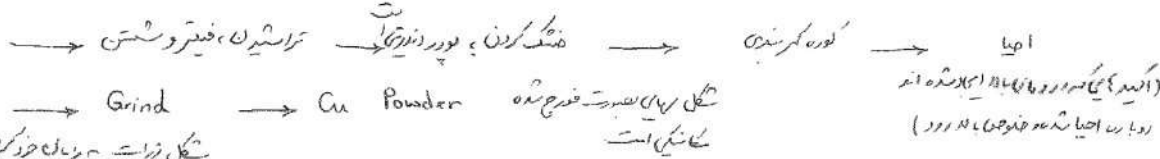 → تراشیدن، فیلتر و شستن → خشک کردن، پودر دندریتی است → کوره گرمسندی → احیا
(اکسید هایی که در دمای بالا ایجاد شده اند
دوباره احیا شده خلوص بالا رود)
→ Grind → Cu Powder شکل نهایی بصورت خورد شده
مکانیکی است
شکل ذرات به زمان خرد